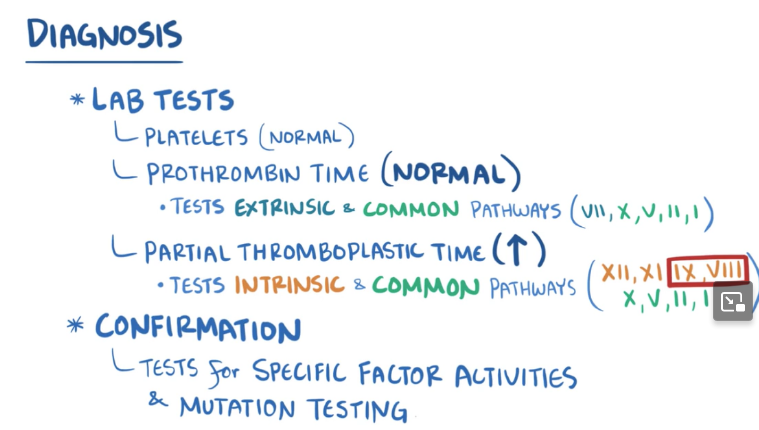 DIAGNOSIS
* LAB TESTS
PLATELETS (NORMAL)
PROTHROMBIN TIME (NORMAL)
• TESTS EXTRINSIC & COMMON PATHWAYS (VII, X, V, II, I)
PARTIAL THROMBOPLASTIC TIME (↑)
• TESTS INTRINSIC & COMMON PATHWAYS (XII, XI IX, VIII
X, V, II, I)
* CONFIRMATION
TESTS for SPECIFIC FACTOR ACTIVITIES
& MUTATION TESTING